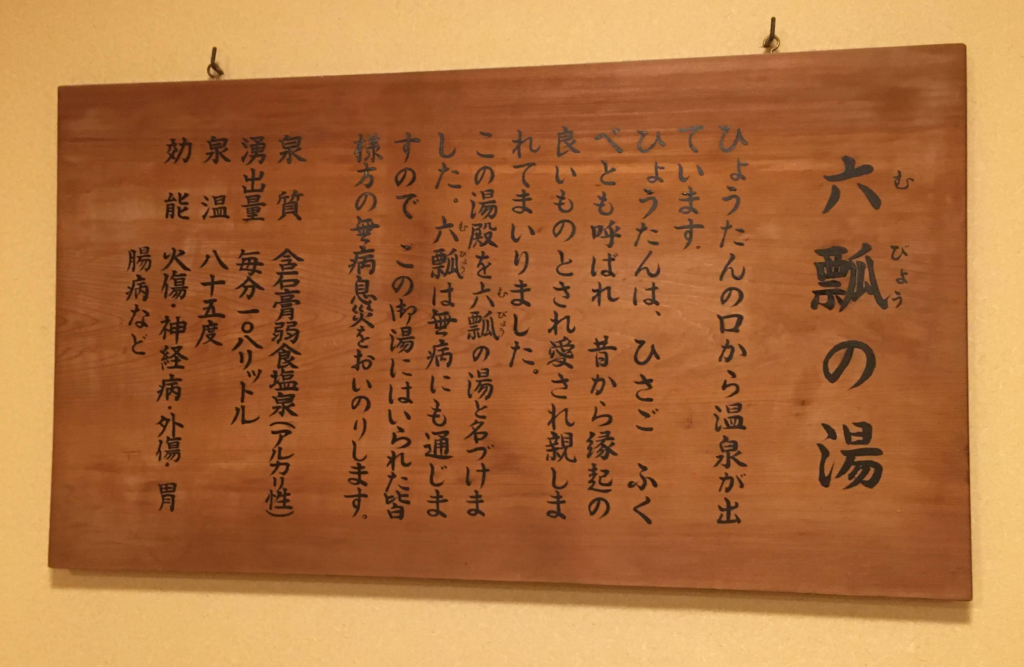 六瓢の湯
むびょう
ひょうたんの口から温泉が出
ています.
ひょうたんは、ひさご ふく
べとも呼ばれ 昔から縁起の
良いものとされ愛され親しま
れてまいりました。
この湯殿を六瓢の湯と名づけま
むびょう
した.六瓢は無病にも通じま
むびょう
すので この御湯にはいられた皆
様方の無病息災をおいのりします。
泉質 含石膏弱食塩泉(アルカリ性)
湧出量 毎分一〇八リットル
泉温 八十五度
効能 火傷・神経病・外傷・胃
腸病など